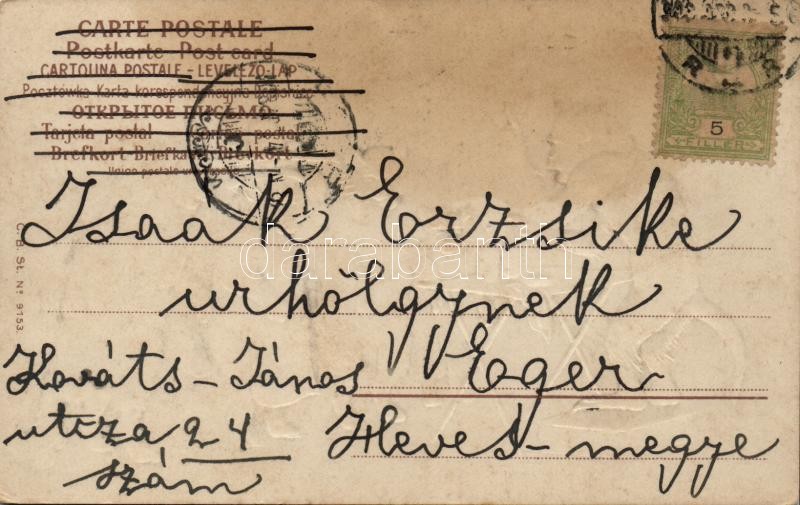 CARTE POSTALE
Postkarte Post card
CARTOLINA POSTALE - LEVELEZŐ-LAP
Pocztówka Karta korespondencyjna
ОТКРЫТОЕ ПИСЬМО
Tarjeta postal
Brefkort Briefka Brevkort
Union postale
5
FILLÉR
Isaak Erzsike
darabanth
urhölgynek
Kováts - János Eger
utcza 24 Heves - megye
szám
G.B. St. Nº 9153.